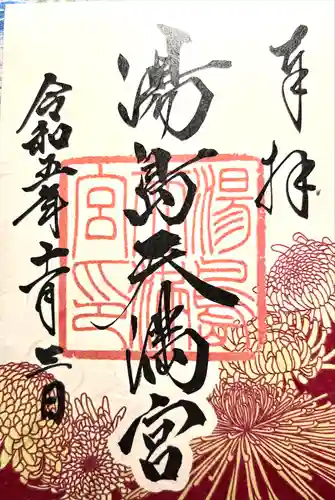 奉拝
湯島天満宮
令和五年十一月三日